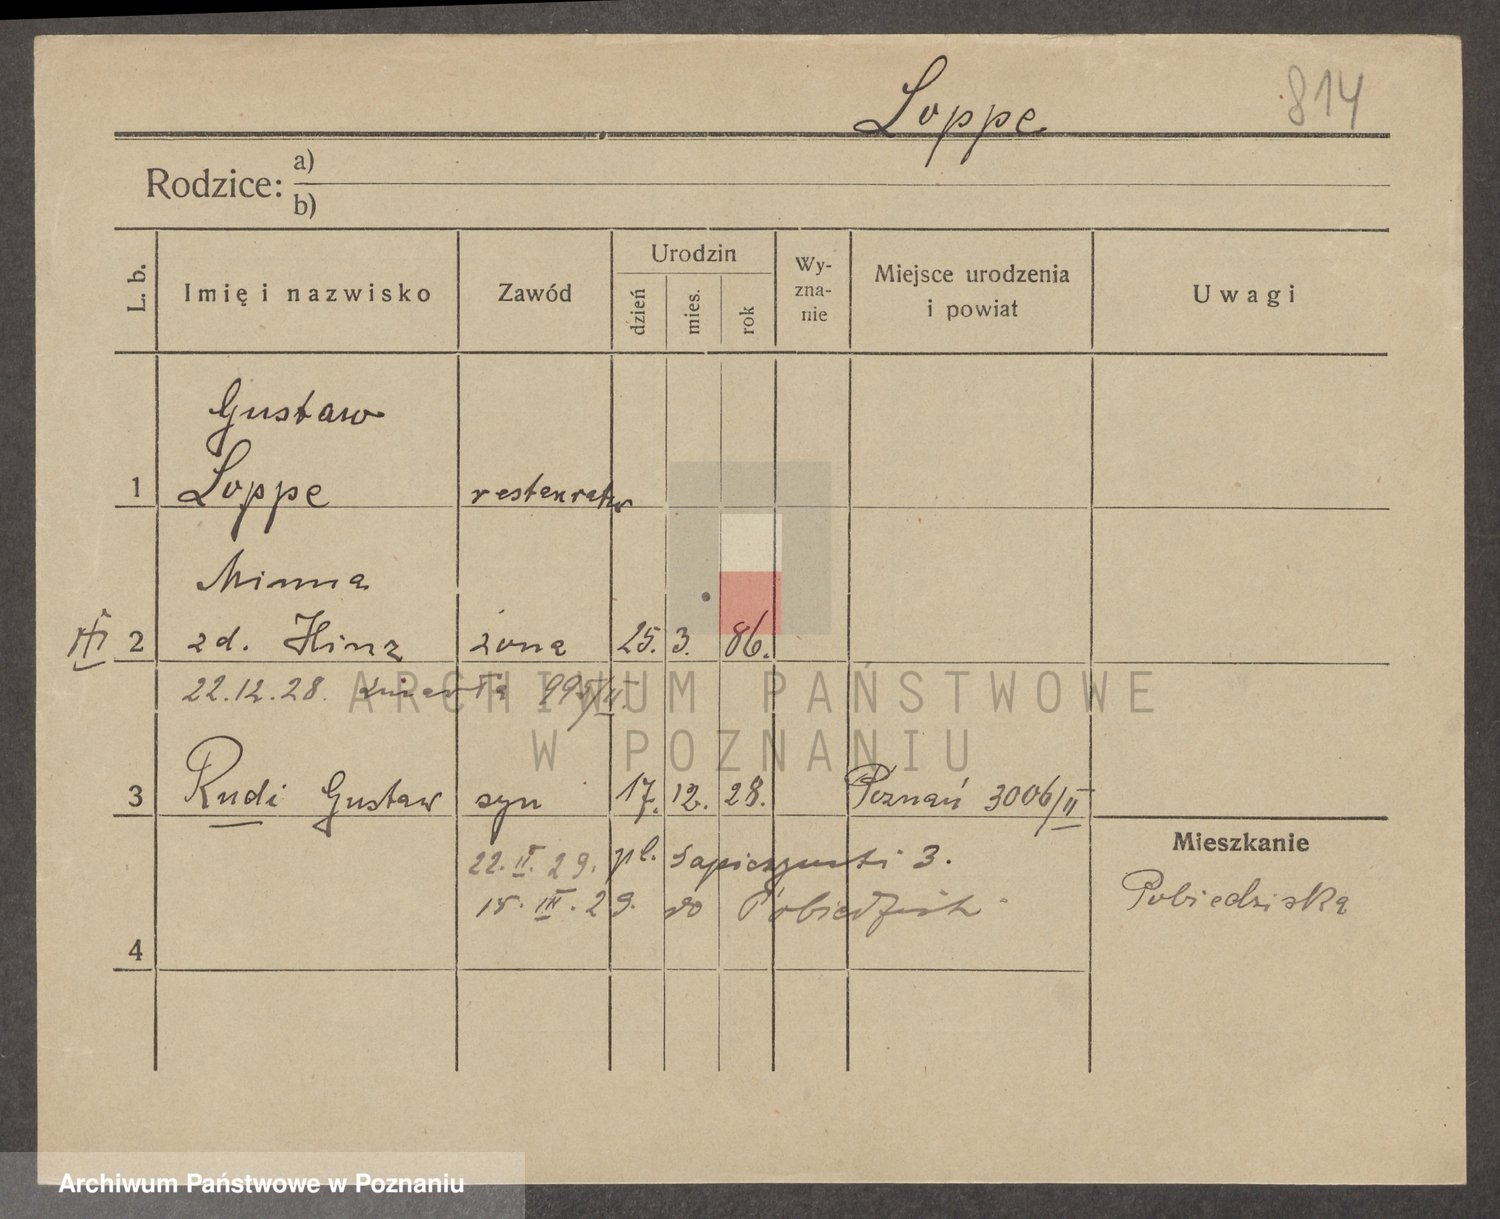 Loppe
814
Rodzice: a)
b)
L. b.
Imię i nazwisko
Zawód
Urodzin
dzień
mies.
rok
Wy-
zna-
nie
Miejsce urodzenia
i powiat
Uwagi
Gustaw
1 Loppe restaurator
Minna
2 zd. Hinz żona 25. 3. 86.
22.12.28. zmarła 995/II.
3 Rudi Gustaw syn 17. 12. 28. Poznań 3006/II
Mieszkanie
22. II. 29. pl. Sapieżyński 3.
Pobiedziska
15. III. 29. do Pobiedzisk
4
ARCHIWUM PAŃSTWOWE
W POZNANIU
Archiwum Państwowe w Poznaniu